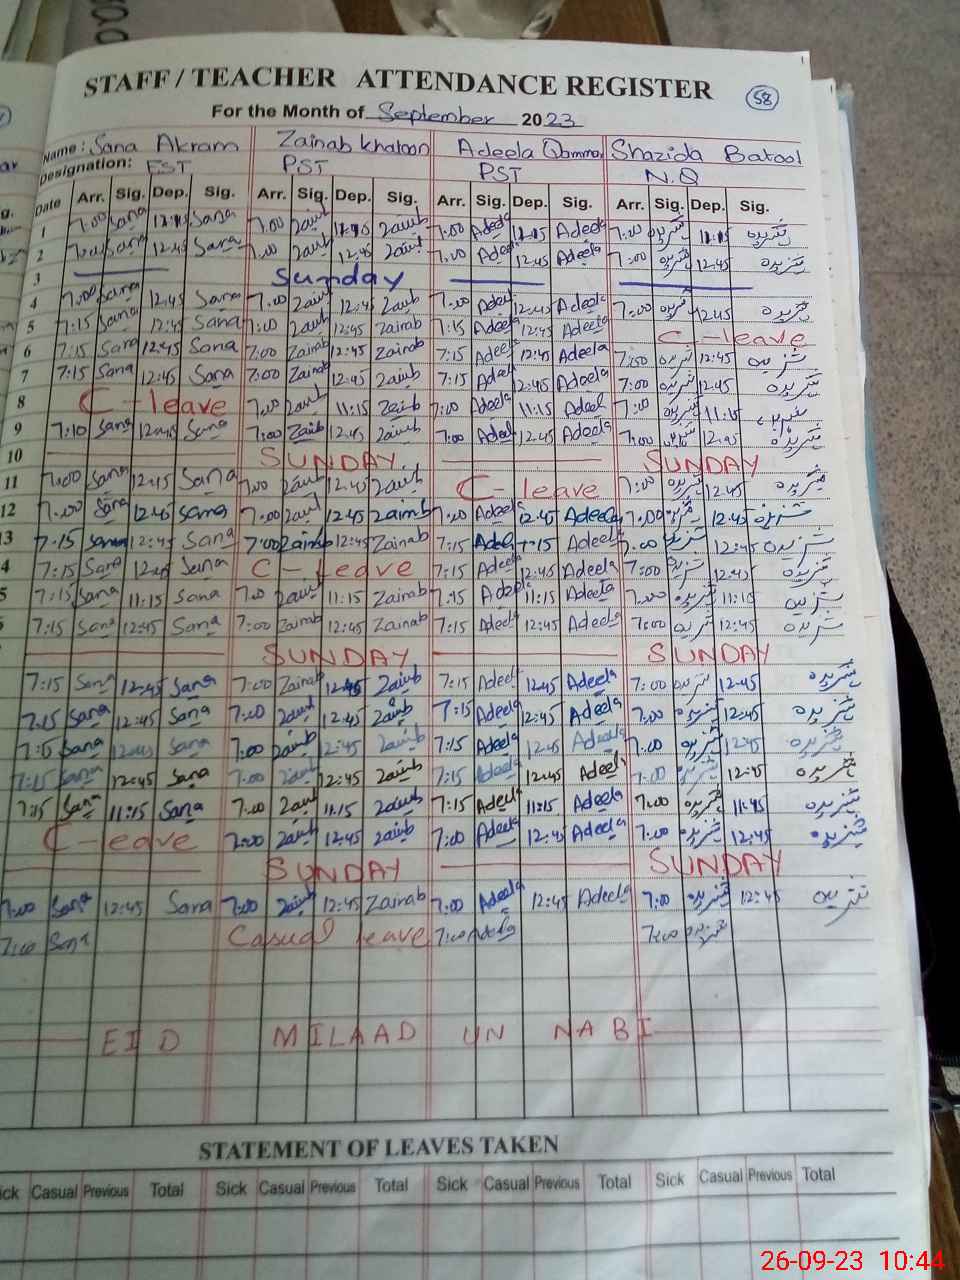 58
STAFF / TEACHER ATTENDANCE REGISTER
For the Month of September 2023
Name: Sana Akram Zainab Khatoon Adeela Qammar Shazida Batool
Designation: EST PST PST N.Q
Date Arr. Sig. Dep. Sig. Arr. Sig. Dep. Sig. Arr. Sig. Dep. Sig. Arr. Sig. Dep. Sig.
1 7:00 Sana Sana 7:00 Zainb Zainb 7:00 Adeela 12:15 Adeela 7:00 شزیدہ 11:15 شزیدہ
2 7:00 Sana 12:45 Sana 7:00 Zainb 12:45 Zainb 7:00 Adeela 12:45 Adeela 7:00 شزیدہ 12:45 شزیدہ
3 Sunday
4 7:00 Sana 12:45 Sana 7:00 Zainb 12:45 Zainb 7:00 Adeela 12:45 Adeela 7:00 شزیدہ 12:45 شزیدہ
5 7:15 Sana 12:45 Sana 7:00 Zainb 12:45 Zainab 7:15 Adeela 12:45 Adeela C-leave
6 7:15 Sana 12:45 Sana 7:00 Zainab 12:45 Zainab 7:15 Adeela 12:45 Adeela 7:00 شزیدہ 12:45 شزیدہ
7 7:15 Sana 12:45 Sana 7:00 Zainab 12:45 Zainb 7:15 Adeela 12:45 Adeela 7:00 شزیدہ 12:45 شزیدہ
8 C-leave 7:00 Zainb 11:15 Zainb 7:00 Adeela 11:15 Adeel 7:00 شزیدہ 11:15
9 7:10 Sana 12:45 Sana 7:00 Zainb 12:45 Zainb 7:00 Adeel 12:45 Adeela 7:00 12:45 شزیدہ
10 SUNDAY SUNDAY
11 7:00 Sana 12:15 Sana 7:00 Zainb 12:45 Zainb C-leave 7:00 شزیدہ 12:45 شزیدہ
12 7:00 Sana 12:45 Sana 7:00 Zainb 12:45 Zainb 7:00 Adeela 12:45 Adeela 7:00 شزیدہ 12:45 شزیدہ
13 7:15 Sana 12:45 Sana 7:00 Zainab 12:45 Zainab 7:15 Adeel Adeela 7:00 شزیدہ 12:45 شزیدہ
4 7:15 Sana Sana C-Leave 7:15 Adeela 12:45 Adeela 7:00 شزیدہ 12:45 شزیدہ
5 7:15 Sana 11:15 Sana 7:00 Zainb 11:15 Zainab 7:15 Adeela 11:15 Adeela 7:00 شزیدہ شزیدہ
7:15 Sana 12:45 Sana 7:00 Zainab 12:45 Zainab 7:15 Adeela 12:45 Adeela 7:00 شزیدہ 12:45 شزیدہ
SUNDAY SUNDAY
7:15 Sana 12:45 Sana 7:00 Zainab 12:45 Zainb 7:15 Adeela 12:45 Adeela 7:00 شزیدہ 12:45 شزیدہ
7:15 Sana 12:45 Sana 7:00 Zainb 12:45 Zainb 7:15 Adeela 12:45 Adeela 7:00 شزیدہ 12:45 شزیدہ
7:15 Sana 12:45 Sana 7:00 Zainb 12:45 Zainb 7:15 Adeela 12:45 Adeela 7:00 شزیدہ 12:45 شزیدہ
7:15 Sana 12:45 Sana 7:00 Zainb 12:45 Zainb 7:15 Adeela 12:45 Adeela 7:00 شزیدہ 12:45 شزیدہ
7:15 Sana 11:15 Sana 7:00 Zainb 11:15 Zainb 7:15 Adeela 11:15 Adeela 7:00 شزیدہ 11:45 شزیدہ
C-leave 7:00 Zainb 12:45 Zainb 7:00 Adeela 12:45 Adeela 7:00 شزیدہ 12:45 شزیدہ
SUNDAY SUNDAY
7:00 Sana 12:45 Sana 7:00 Zainb 12:45 Zainab 7:00 Adeela 12:45 Adeela 7:00 شزیدہ 12:45 شزیدہ
7:00 Sana Casual leave 7:00 Adeela 7:00 شزیدہ
EID MILAAD UN NABI
STATEMENT OF LEAVES TAKEN
ick Casual Previous Total Sick Casual Previous Total Sick Casual Previous Total Sick Casual Previous Total
26-09-23 10:44